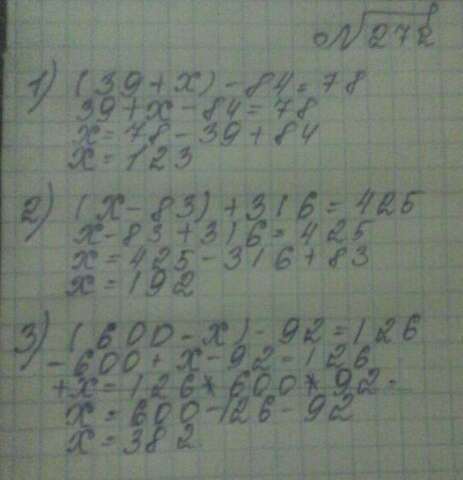 №272
1) (39+x)-84=78
39+x-84=78
x=78-39+84
x=123
2) (x-83)+316=425
x-83+316=425
x=425-316+83
x=192
3) (600-x)-92=126
-600+x-92=126
+x=126*600*92.
x=600-126-92
x=382